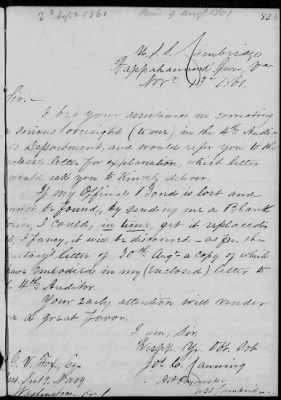 U.S.S. Cambridge
Rappahannock River, Va
Nov. 13th 1861.
Sir:—
I beg your assistance in correcting
a serious oversight (to me) in the 4th Audi-
Department, and would refer you to the
letter for explanation, which letter
would ask you to kindly deliver.
If my Official Bond is lost and
not be found, by sending me a Blank
I could, in time, get it replaced
I fancy, it will be discovered — as per the
letter of 30th Augt a copy of which
have embodied in my (enclosed) letter to
4th Auditor.
Your early attention will render
me a great favor.
I am, Sir
Respy. Yr. Obt. Svt
Jos. C. Canning
U.S.S. Cambridge
G. V. Fox, Esq.
Navy
Washington